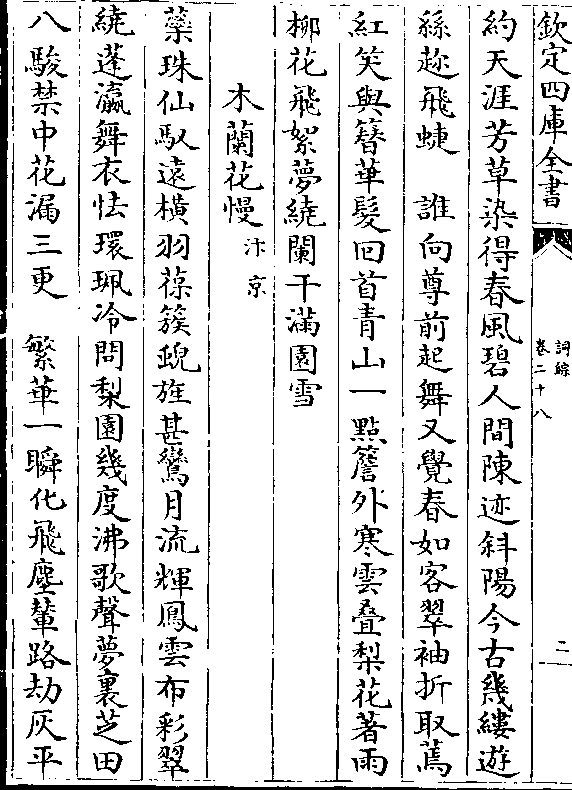 欽定四庫全書
詞綜
卷二十八
二
約天涯芳草染得春風碧人間陳迹斜陽今古幾縷遊
絲趂飛蜨　誰向尊前起舞又覺春如客翠袖折取蔫
紅笑與簪華髮回首青山一點簷外寒雲叠梨花著雨
柳花飛絮夢繞闌干滿園雪
木蘭花慢汴京
蘂珠仙馭遠橫羽葆簇蜺旌甚鸞月流輝鳳雲布彩翠
繞蓬瀛舞衣怯環珮冷問梨園幾度沸歌聲夢裏芝田
八駿禁中花漏三更　繁華一瞬化飛塵輦路劫灰平